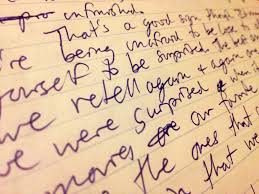 unfinished.
That's a good sign
being unafraid to be
yourself to be surprised. The best
we retell again & again
we were surprised
movies are our favorite
the ones that
that we